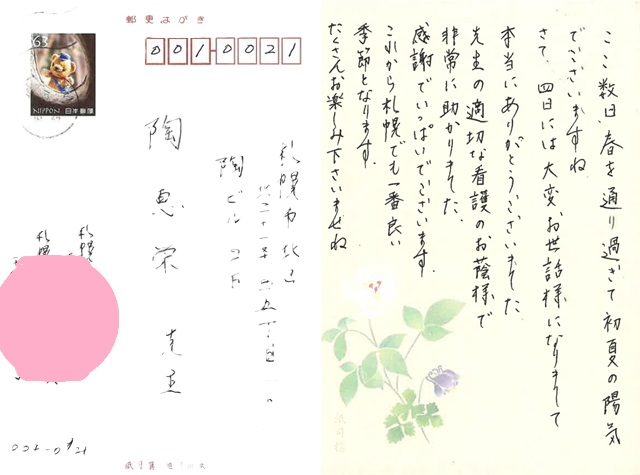 郵便はがき
63
NIPPON 日本郵便
001-0021
札幌市北区
陶ビル
陶 恵 栄 先生
札幌
札幌
ここ数日、春を通り過ぎて初夏の陽気
でございますね
さて、四日には大変お世話様になりまして
本当にありがとうございました
先生の適切な看護のお蔭様で
非常に助かりました
感謝でいっぱいでございます
これから札幌でも一番良い
季節となります
たくさんお楽しみ下さいませね